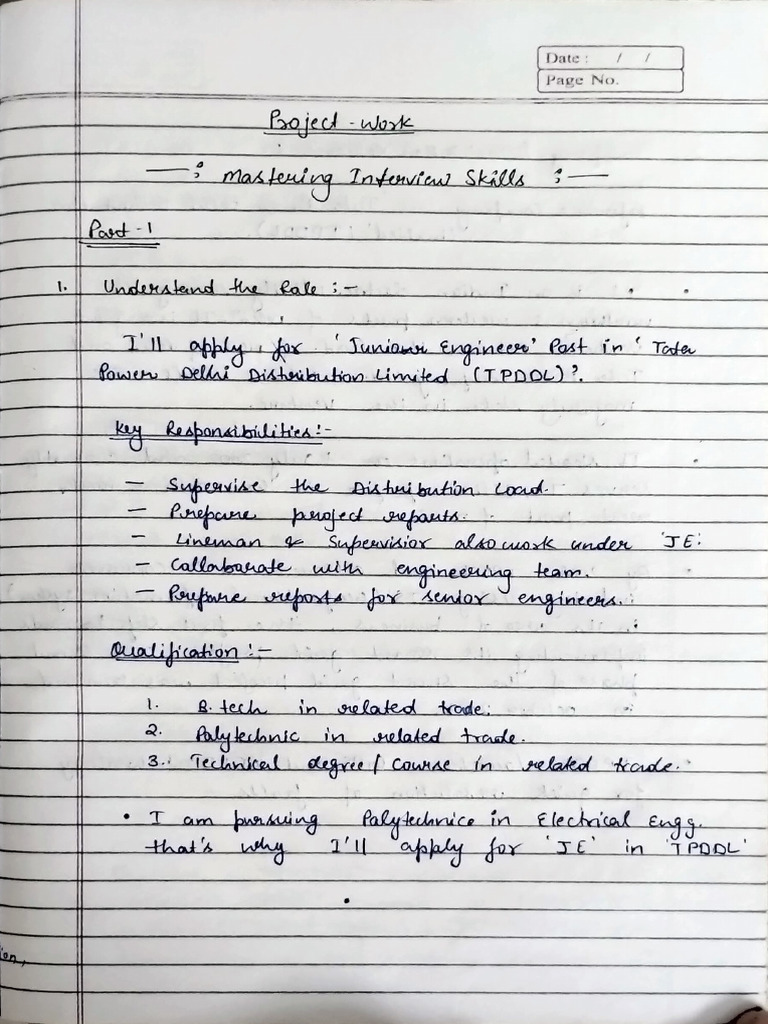 Date : / /
Page No.
Project - Work
—: Mastering Interview Skills :—
Part - 1
1. Understand the Role :-
I'll apply for 'Juniour Engineer' Post in 'Tata
Power Delhi Distribution Limited (TPDDL)'.
Key Responsibilities:-
— Supervise the Distribution Load.
— Prepare project reports.
— Lineman & Supervisior also work under 'JE'.
— Collaborate with engineering team.
— Prepare reports for senior engineers.
Qualification :-
1. B.tech in related trade.
2. Polytechnic in related trade.
3. Technical degree / Course in related trade.
• I am pursuing Polytechnice in Electrical Engg.
that's why I'll apply for 'JE' in 'TPDDL'
ion,